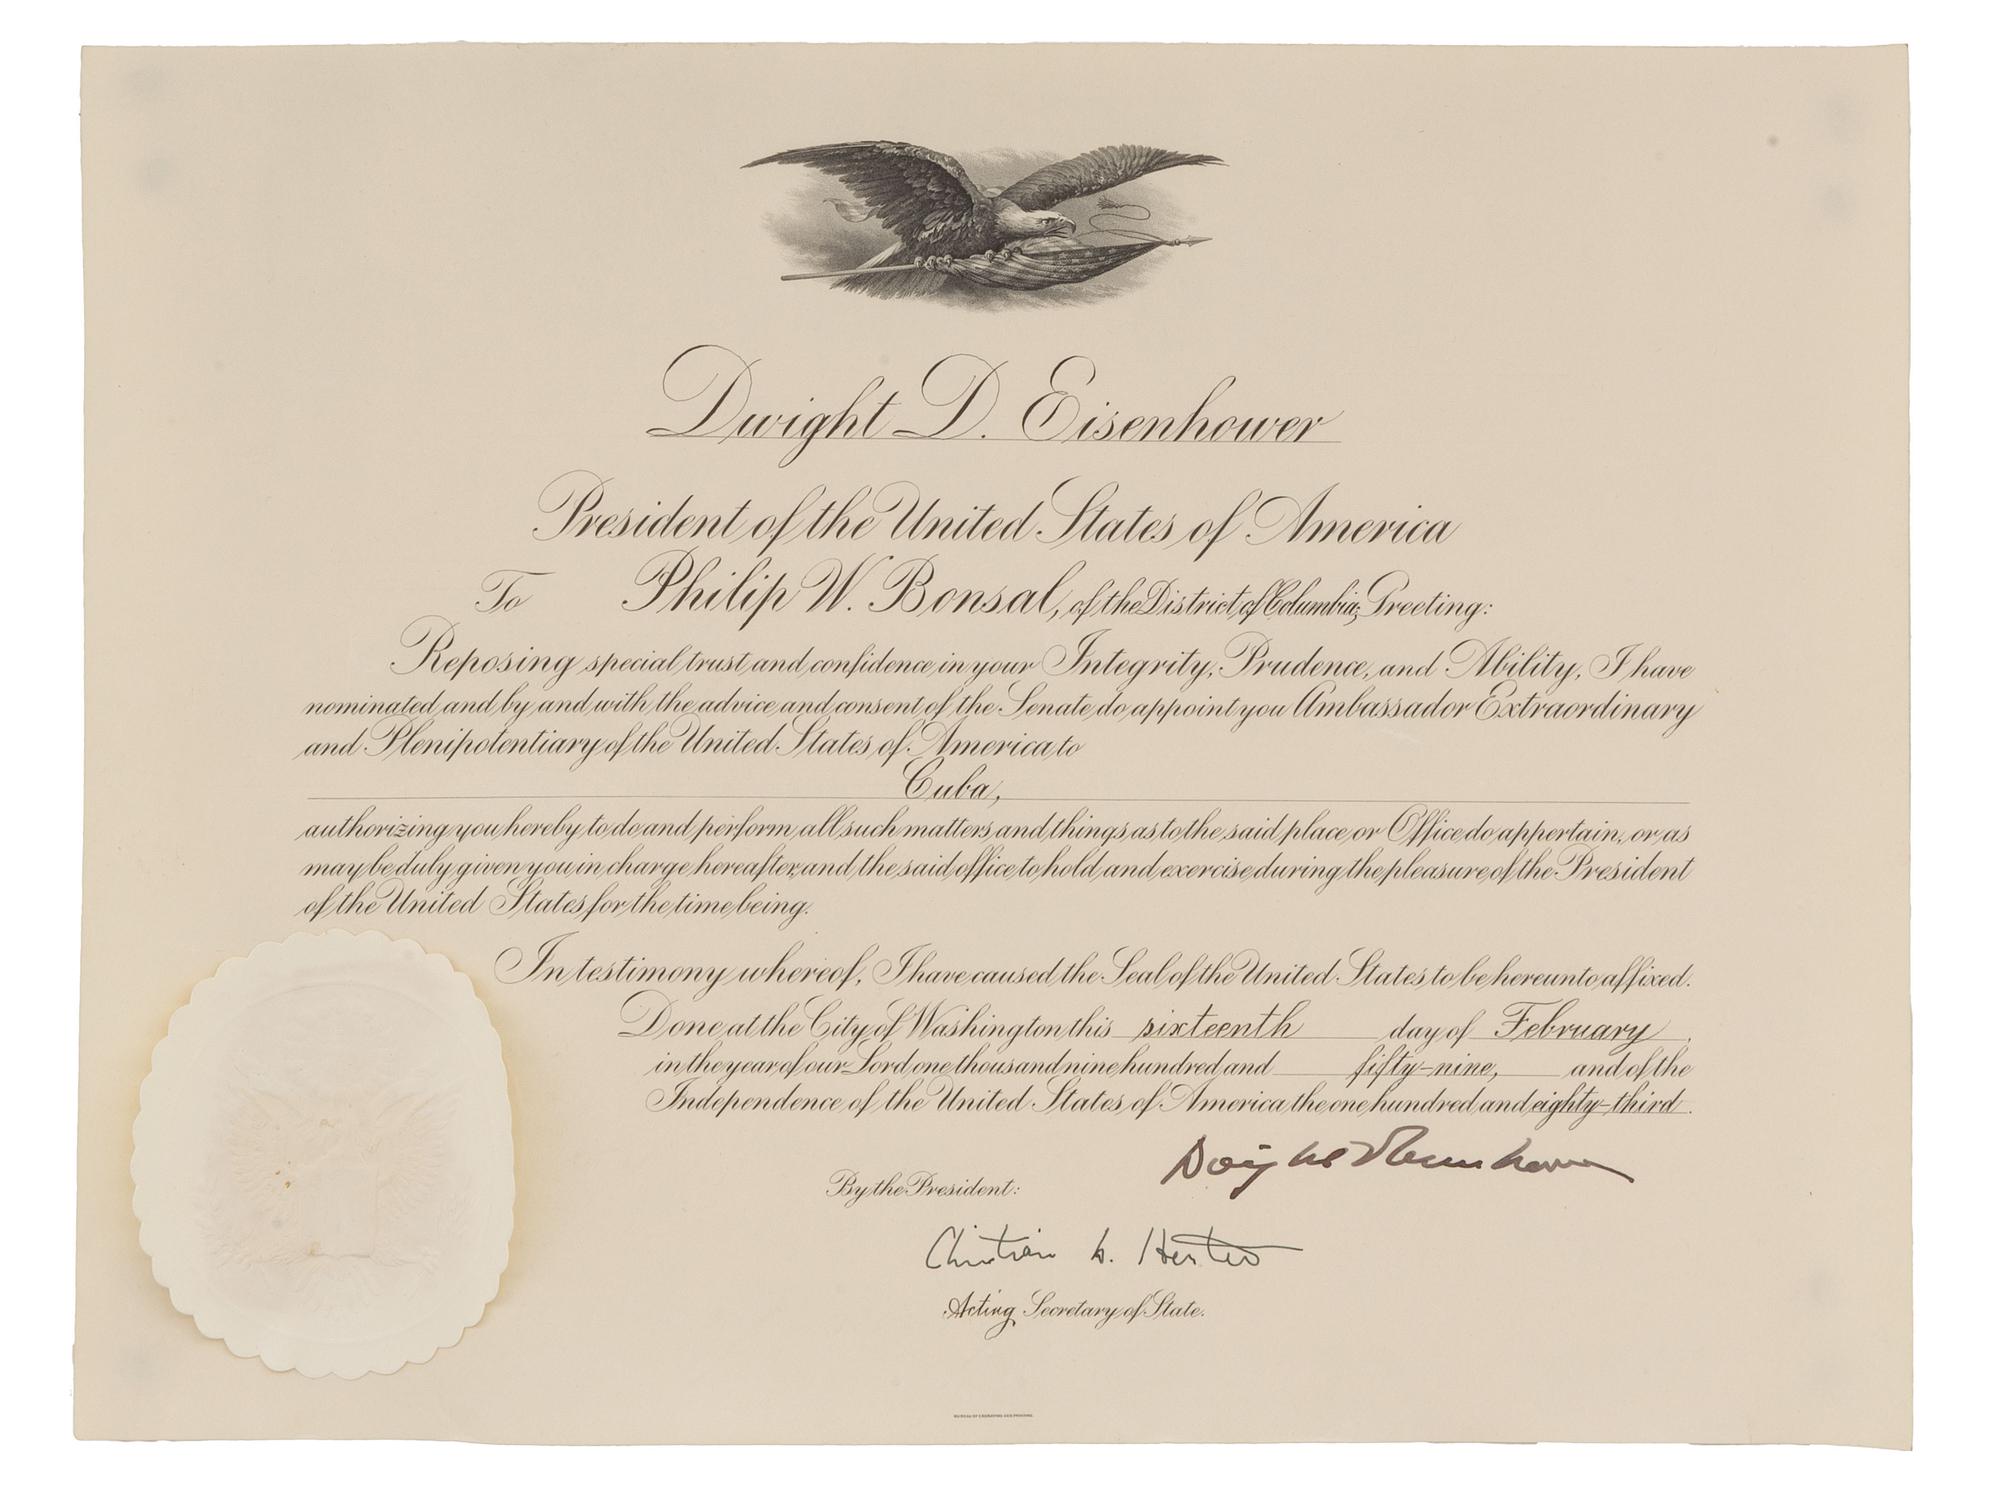 Dwight D. Eisenhower
President of the United States of America
To Philip W. Bonsal, of the District of Columbia, Greeting:
Reposing special trust and confidence in your Integrity, Prudence, and Ability, I have
nominated and by and with the advice and consent of the Senate do appoint you Ambassador Extraordinary
and Plenipotentiary of the United States of America to
Cuba,
authorizing you hereby to do and perform all such matters and things as to the said place or Office do appertain, or as
may be duly given you in charge hereafter, and the said office to hold and exercise during the pleasure of the President
of the United States for the time being.
In testimony whereof, I have caused the Seal of the United States to be hereunto affixed.
Done at the City of Washington this sixteenth day of February
in the year of our Lord one thousand nine hundred and fifty-nine, and of the
Independence of the United States of America the one hundred and eighty-third.
Dwight D Eisenhower
By the President:
Christian A. Herter
Acting Secretary of State.
BUREAU OF ENGRAVING AND PRINTING